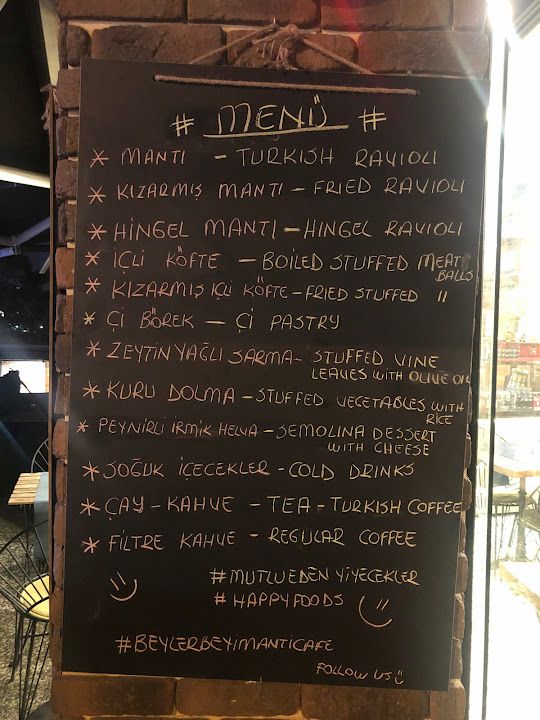 # MENÜ #
* MANTI - TURKISH RAVIOLI
* KIZARMIŞ MANTI - FRIED RAVIOLI
* HİNGEL MANTI - HINGEL RAVIOLI
* İÇLİ KÖFTE - BOILED STUFFED MEAT
BALLS
* KIZARMIŞ İÇLİ KÖFTE - FRIED STUFFED "
* Çİ BÖREK - Çİ PASTRY
* ZEYTİN YAĞLI SARMA - STUFFED VINE
LEAVES WITH OLIVE OIL
* KURU DOLMA - STUFFED VEGETABLES WITH
RICE
* PEYNİRLİ İRMİK HELVA - SEMOLINA DESSERT
WITH CHEESE
* SOĞUK İÇECEKLER - COLD DRINKS
* ÇAY - KAHVE - TEA - TURKISH COFFEE
* FİLTRE KAHVE - REGULAR COFFEE
#MUTLUEDENYİYECEKLER
#HAPPYFOODS
#BEYLERBEYİMANTICAFE
FOLLOW US